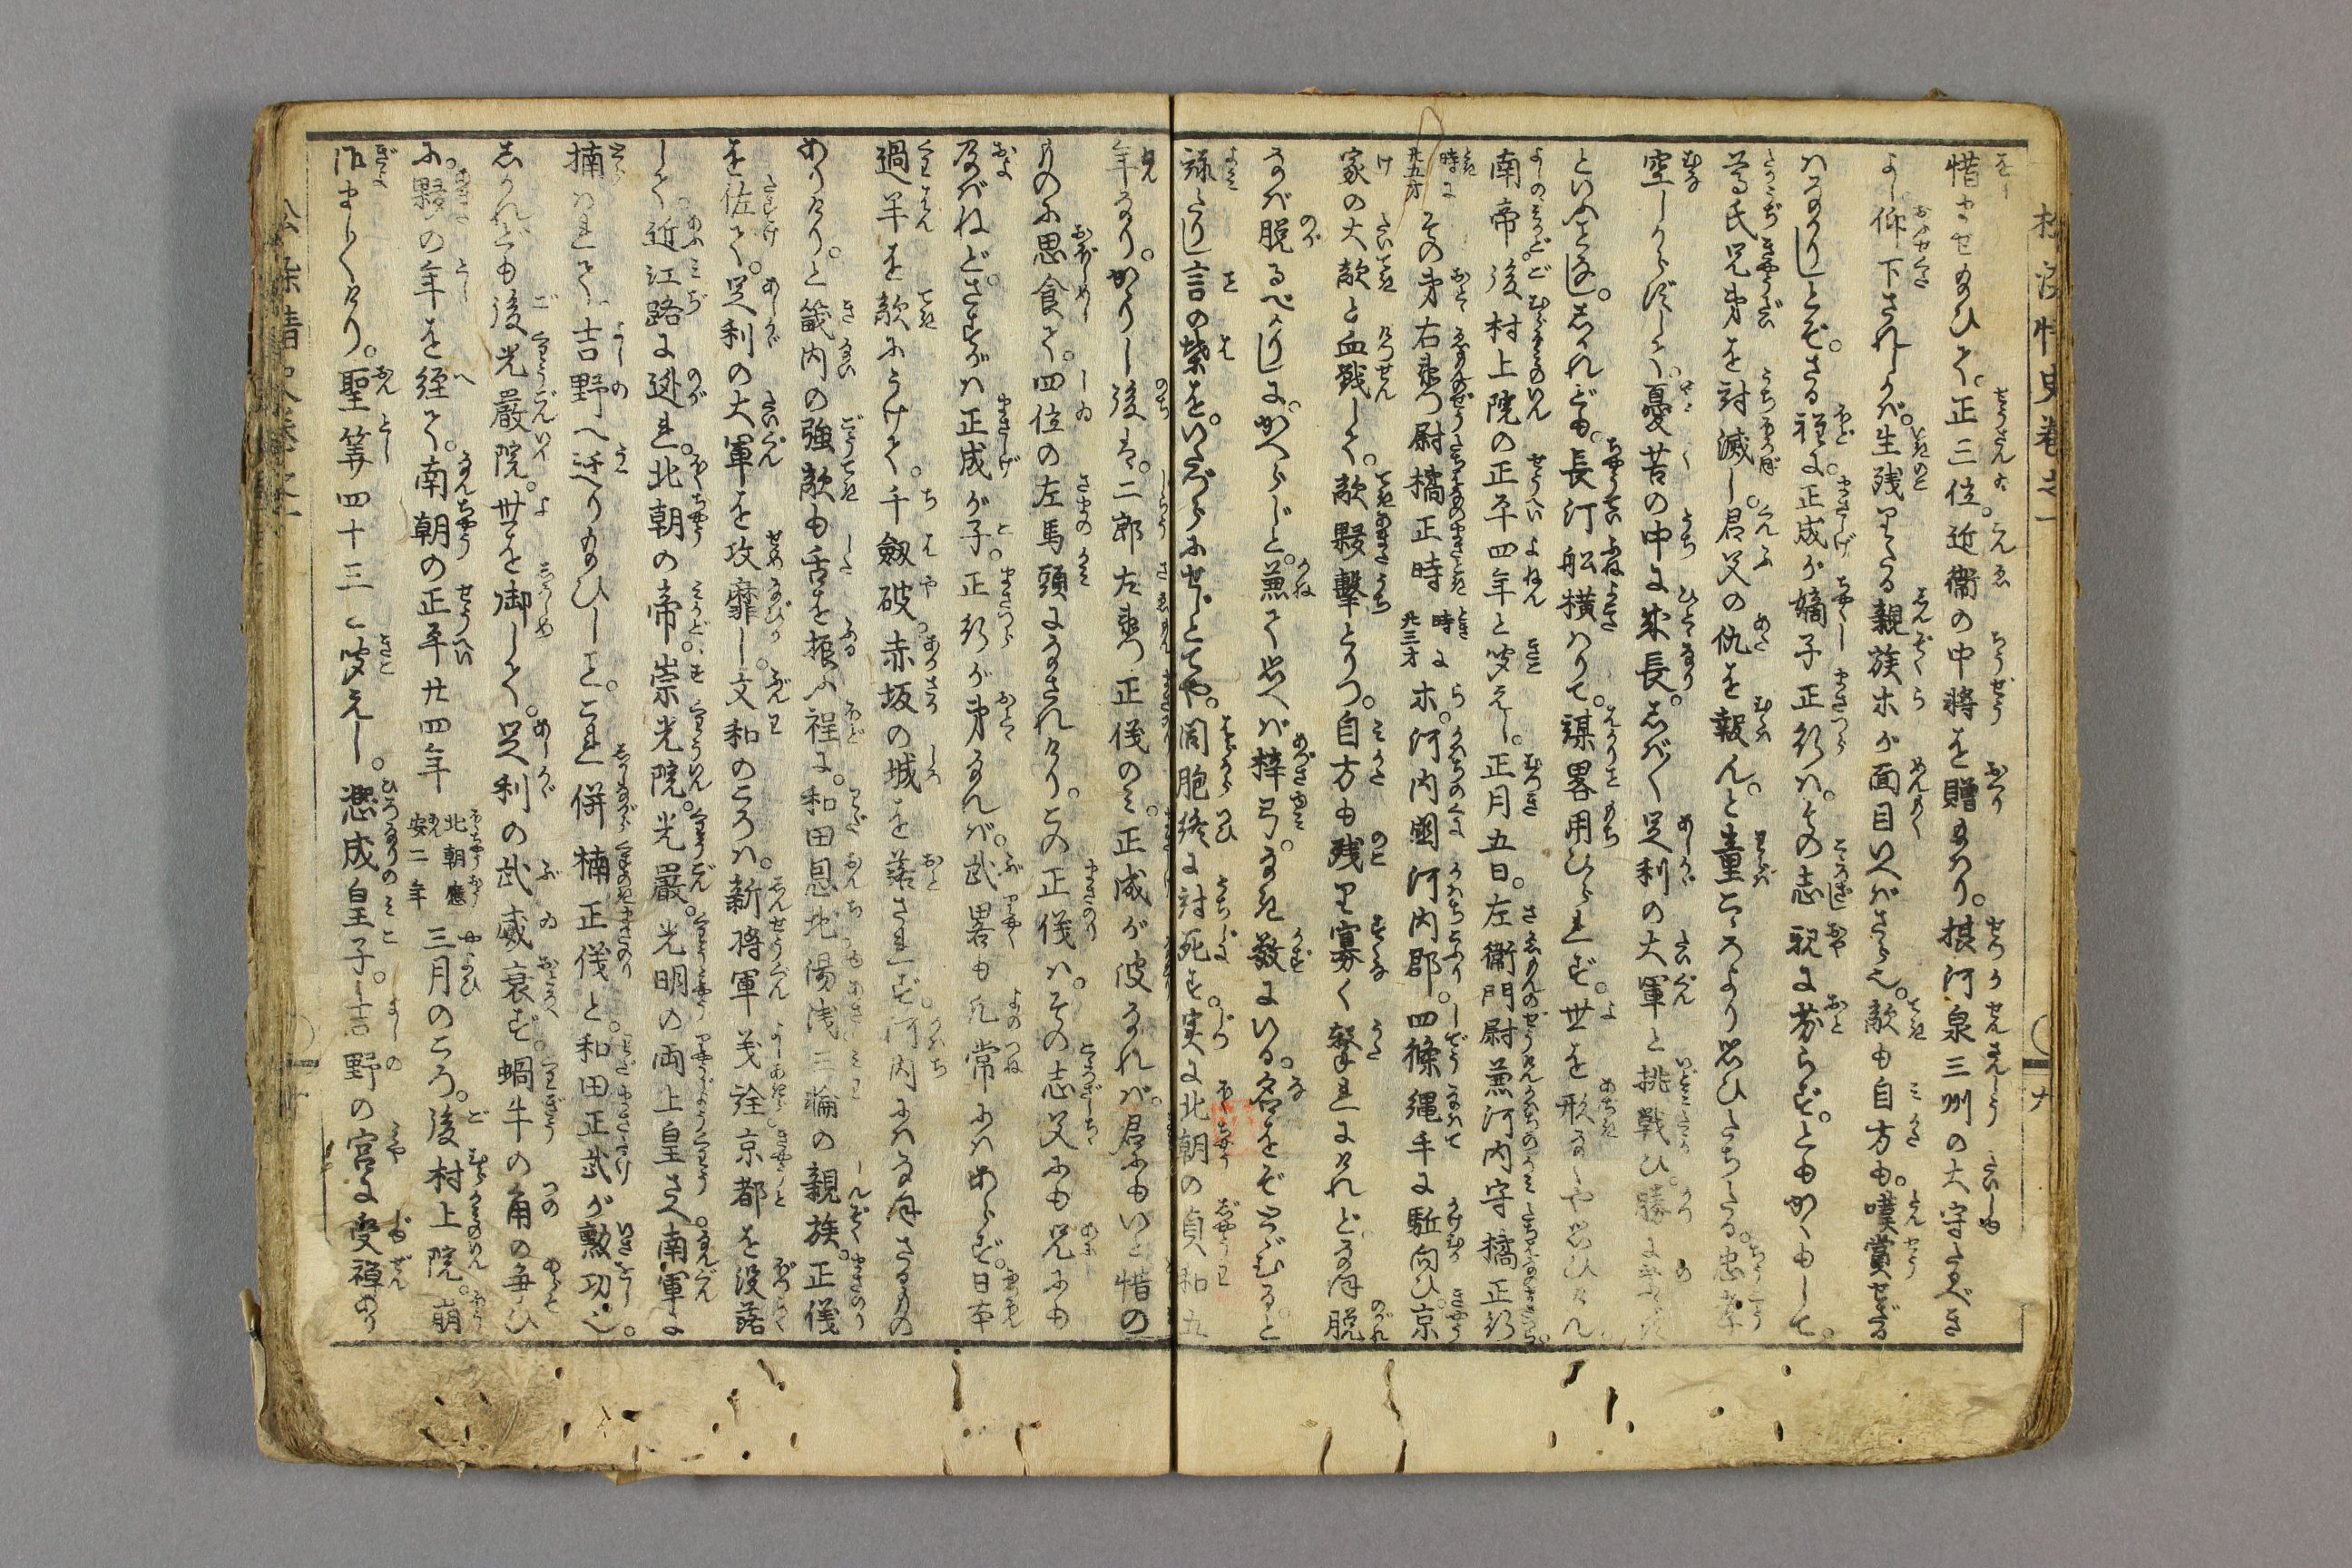 惜ませ給ひて。正三位。近衛の中將を贈給はり。摂河泉三州の大守たるべき
よし仰下されしかば。生残りたる親族ホが面目いへばさら也。敵も自方も。嘆賞せざる
はなかりしとぞ。さる程に。正成が嫡子正行は。その志親に劣らず。ともかくもして。
尊氏兄弟を討滅し。君父の仇を報ん。と童こゝろより思ひたちたる。忠孝
空しからずして。憂苦の中に成長。しば〳〵足利の大軍と挑戰ひ。勝に
といふことなし。しかれども。長汀舩横はりて。謀畧用ひられず。世を形なしや思ひけん
南帝。後村上院の正平四年と聞えし。正月五日。左衛門尉兼河内守橘正行
時に廿五才その弟右衛門尉橘正時時に廿三才ホ。河内國河内郡。四條縄手に駈向ひ。京
家の大敵と血戰して。敵夥撃とりつ。自方も残り寡く撃れにけれど。なほ脱
なば脱るべかりしに。かへらじと。兼て思へば梓弓。なき数にいる。名をぞとゞむると
詠たりし言の葉を。いたづらにせじとてや。同胞終に討死す。実に北朝の貞和五
年なり。かゝりし後は。二郎左衛門正儀のみ。正成が彼なれば。君にもいと惜の
ものに思食て。四位の左馬頭になされけり。この正儀は。その志父にも兄にも
及ばねど。さすがは正成が子。正行が弟なれば。武畧も凡常にはあらず。日本
過半を敵にうけて。千劔破。赤坂の城を落されず。河内にはなほさるもの
ありけり。と畿内の強敵も舌を振ふ程に。和田恩地湯浅三輪の親族。正儀
を佐て。足利の大軍を攻靡し。文和のころは。新將軍義詮京都を没落
して。近江路に迯れ。北朝の帝。崇光院。光嚴。光明の両上皇さへ南軍に
擒はれて。吉野へ迁り給ひしは。これ併楠正儀と。和田正武が勲功也。
しかれども後光嚴院。世を御しめして。足利の武威衰ず。蝸牛の角の争ひ
に。夥の年を経て。南朝の正平廿四年北朝應安二年三月のころ。後村上院。崩
御ましましけり。聖算四十三と聞えし。熈成皇子。吉野の宮に受禅あり